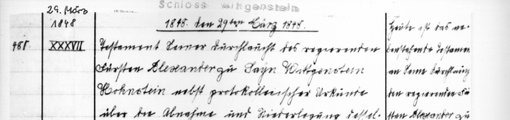 Schloss Wittgenstein
29. März
1848
1848. den 29ten März 1848.
481. XXXVII. Testament Seiner Durchlaucht des regierenden
Fürsten Alexander zu Sayn Wittgenstein
Hohnstein nebst protokollarischer Urkunde
über die Abnahme und Niederlegung dessel-
Heute ist das
stehende Testament
an Seine Durchlaucht
den regierenden Für-
sten Alexander zu